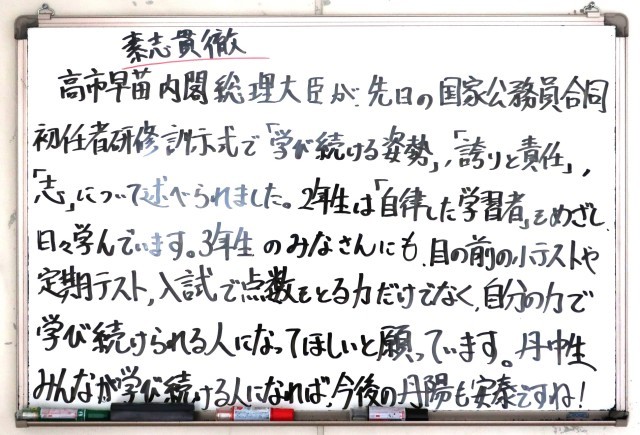 素志貫徹
高市早苗内閣総理大臣が、先日の国家公務員合同
初任者研修訓示式で「学び続ける姿勢」,「誇りと責任」,
「志」について述べられました。2年生は「自律した学習者」をめざし
日々学んでいます。3年生のみなさんにも、目の前の小テストや
定期テスト,入試で点数をとる力だけでなく、自分の力で
学び続けられる人になってほしいと願っています。丹中生
みんなが学び続ける人になれば、今後の丹陽も安泰ですね!